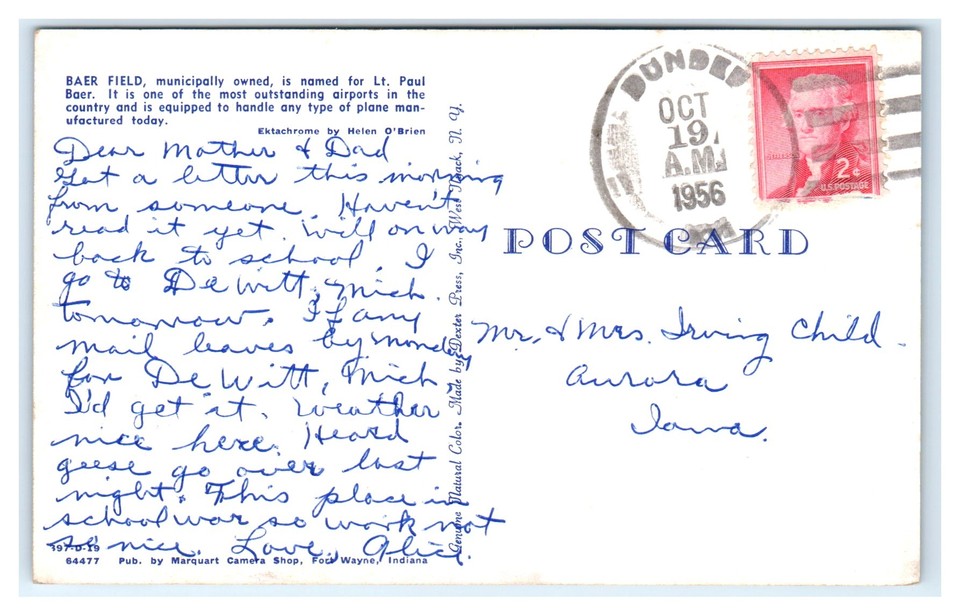 BAER FIELD, municipally owned, is named for Lt. Paul
Baer. It is one of the most outstanding airports in the
country and is equipped to handle any type of plane man-
ufactured today.
Ektachrome by Helen O'Brien
Dear Mother & Dad
Got a letter this morning
from someone. Haven't
read it yet. Will on way
back to school. I
go to De Witt, Mich.
tomorrow. If any
mail leaves by Monday
for De Witt, Mich
I'd get it. Weather
nice here. Heard
geese go over last
night. This place in
school war so work not
so nice. Love, Alice.
197-D-19
64477 Pub. by Marquart Camera Shop, Fort Wayne, Indiana
Genuine Natural Color. Made by Dexter Press, Inc., West Nyack, N. Y.
DUNDEE
OCT
19
A.M.
1956
JEFFERSON
2¢
U.S. POSTAGE
POST CARD
Mr. & Mrs. Irving Child.
Aurora
Iowa.